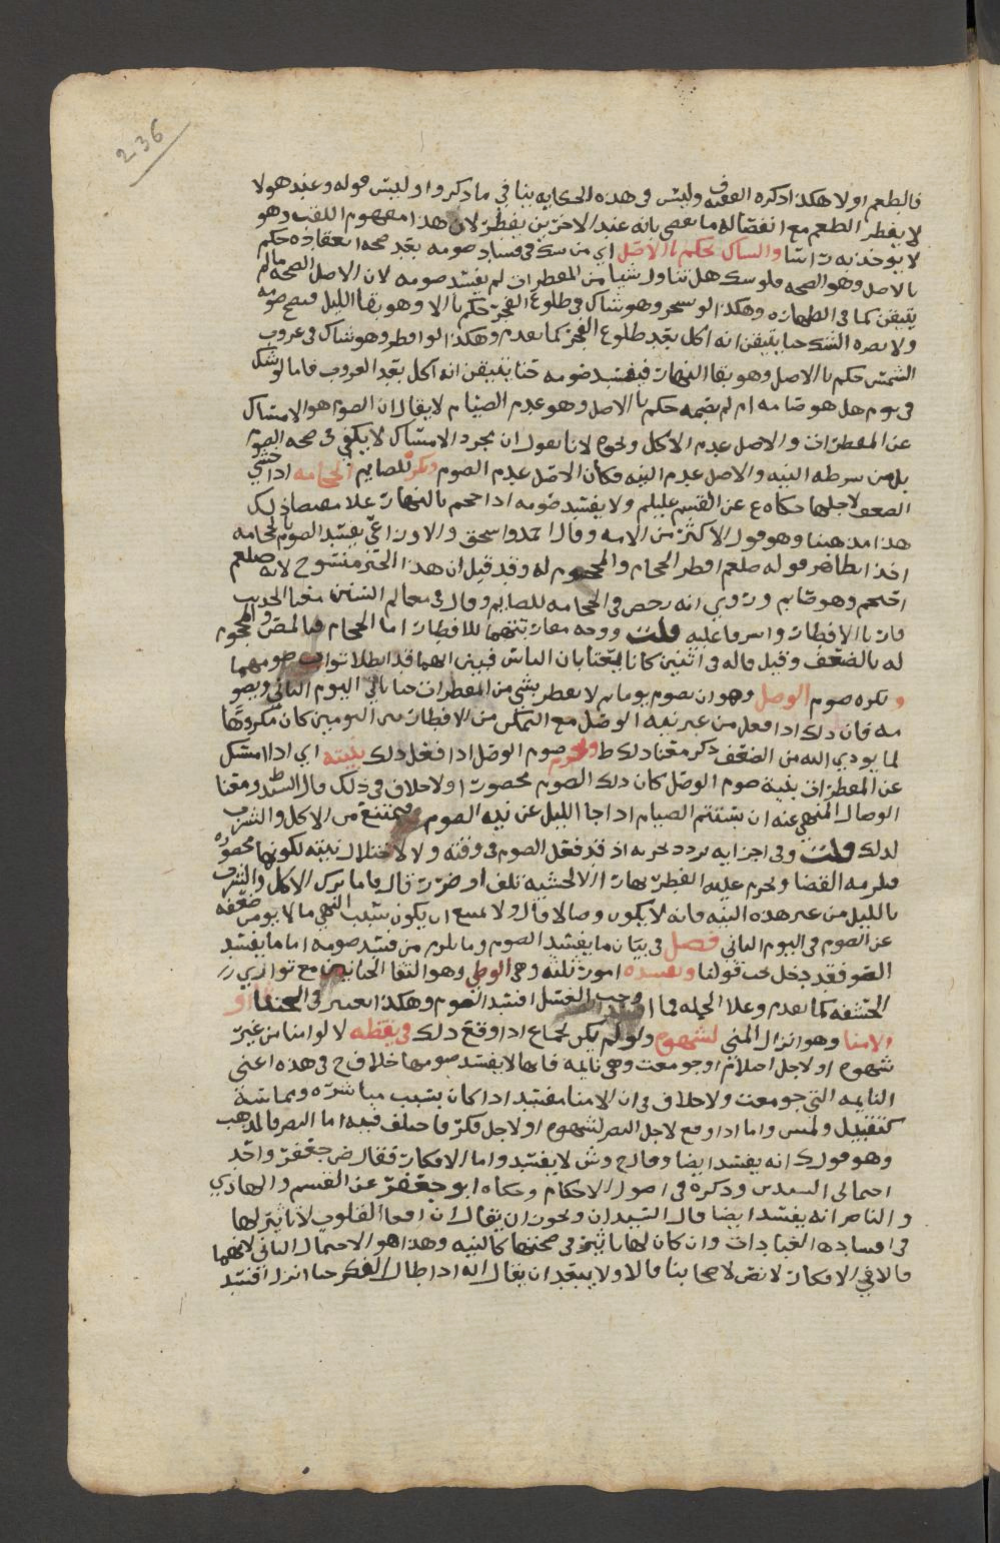 236
فالطعم اولا هكذا ذكره الفقيه وليس فى هذه الحكايه ينافي ما ذكروا وليس قوله وعند هولا
لا يفطر الطعم مع انفصاله ما يقضى بانه عند الاخرين يفطر لان هذا مفهوم اللقب وهو
لا يوخذ به والشاك يحكم بالاصل اي من شك فى فساد صومه بعد صحة انعقاده حكم
بالاصل وهو الصحه فلو شك هل تناول شيا من المفطرات لم يفسد صومه لان الاصل الصحه مالم
يتيقن كما فى الطهاره وهكذا لو تسحر وهو شاك فى طلوع الفجر حكم بالاصل وهو بقا الليل فيصح صومه
ولا يضره الشك حتا يتيقن انه اكل بعد طلوع الفجر كما تقدم وهكذا لو افطر وهو شاك فى غروب
الشمس حكم بالاصل وهو بقا النهار فيفسد صومه حتا يتيقن انه اكل بعد الغروب فاما لو شك
فى يوم هل هو صامه ام لم يصمه حكم بالاصل وهو عدم الصيام لا يقال ان الصوم هو الامساك
عن المفطرات والاصل عدم الاكل ونحوه لانا نقول ان مجرد الامساك لا يكفي فى صحه الصوم
بل من شرطه النيه والاصل عدم النيه فكان الاصل عدم الصوم وتكره للصايم الحجامه اذا خشي
الضعف لاجلها حكاه ع عن القسم عليلم ولا يفسد صومه اذا احتجم بالنهار علا مقتضا ذلك
هذا مذهبنا وهو قول الاكثر من الامه وقال احمد واسحق والاوزاعي يفسد الصوم بالحجامه
اخذا بظاهر قوله صلعم افطر الحجام والمحجوم له وقد قيل ان هذا الخبر منسوخ لانه صلعم
احتجم وهو صايم وروي انه رخص فى الحجامه للصايم وقال فى معالم السنن معنا الحديث
فارنا الافطار واشرفا عليه قلت ووجه مقاربتهما للافطار اما الحجام فبالمص والمحجوم
له بالضعف وقيل قاله فى اثنين كانا يغتابان الناس فبين انهما قد ابطلا ثواب صومهما
ويكره صوم الوصل وهو ان يصوم يوما ثم لا يفطر بشي من المفطرات حتا ياتي اليوم الثاني ويصو
مه فان ذلك اذا فعل من غير نيه الوصل مع التمكن من الافطار بين اليومين كان مكروها
لما يودي اليه من الضعف ذكر معنا ذلك ط ويحرم صوم الوصل اذا فعل ذلك بنيته اي اذا امسك
عن المفطرات بنية صوم الوصل كان ذلك الصوم محصورا ولا خلاف فى ذلك قال السيد ومعنا
الوصال المنهي عنه ان يستتم الصيام اذا جا الليل عن نيه الصوم ويمتنع من الاكل والشرب
لذلك قلت وفى اجزايه تردد يجزيه اذ قد فعل الصوم فى وقته ولا لاختلال نيته لكونها محصوره
فيلزمه القضا ويحرم عليه الفطر نهارا الا لخشيه تلف او ضرر قال فاما ترك الاكل والشرب
بالليل من غير هذه النيه فانه لا يكون وصالا قال ولا يمتنع ان يكون سبب النهي ما لا يومن ضعفه
عن الصوم فى اليوم الثاني فصل فى بيان ما يفسد الصوم وما يلزم من فسد صومه اما ما يفسد
الصوم فقد دخل تحت قولنا ويفسده امور ثلثه وهى الوطي وهو التقا الختانين مع تواري
الحشفه كما تقدم وعلا الجمله فما اوجب الغسل افسد الصوم وهكذا يعتبر فى الخنثا او
الامنا وهو انزال المني لشهوه ولو لم يكن لجماع اذا وقع ذلك فى يقظه لا لو امنا من غير
شهوه او لاجل احتلام او جومعت وهى نايمه فانها لا يفسد صومها خلاف ح فى هذه اعنى
النايمه التي جومعت ولا خلاف فى ان الامنا مفسد اذا كان بسبب مباشره ومماسة
كتقبيل ولمس واما اذا وقع لاجل النظر لشهوه او لاجل فكر فاختلف فيه اما النظر فالمذهب
وهو قول ك انه يفسد ايضا وقال ح وش لا يفسد واما الافكار فقال ض جعفر واحد
احتمالى السيدين وذكره فى اصول الاحكام وحكاه ابو جعفر عن القسم والهادي
والناصر انه يفسد ايضا قال السيدان ويجوز ان يقال ان افعال القلوب لا تاثير لها
فى افساد هذه العبادات وان كان لها تاثير فى صحتها كالنيه وهذا هو الاحتمال الثاني لانهما
قالا في الافكار لا نص لاصحابنا قالا ولا يبعد ان يقال انه اذا طال الفكر حتا انزل افسد